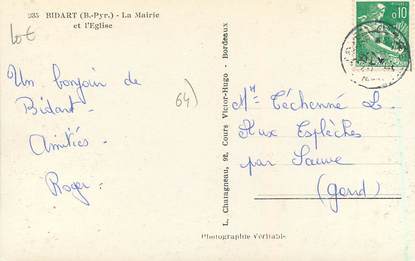 235 BIDART (B.-Pyr.) - La Mairie
et l'Eglise
Un bonjour de
Bidart -
Amitiés -
Roger -
64)
L. Chatagneau, 92, Cours Victor-Hugo - Bordeaux
Photographie Véritable
0,10
Mr Téchenné L.
Aux Esplèches
par Sauve
(Gard)